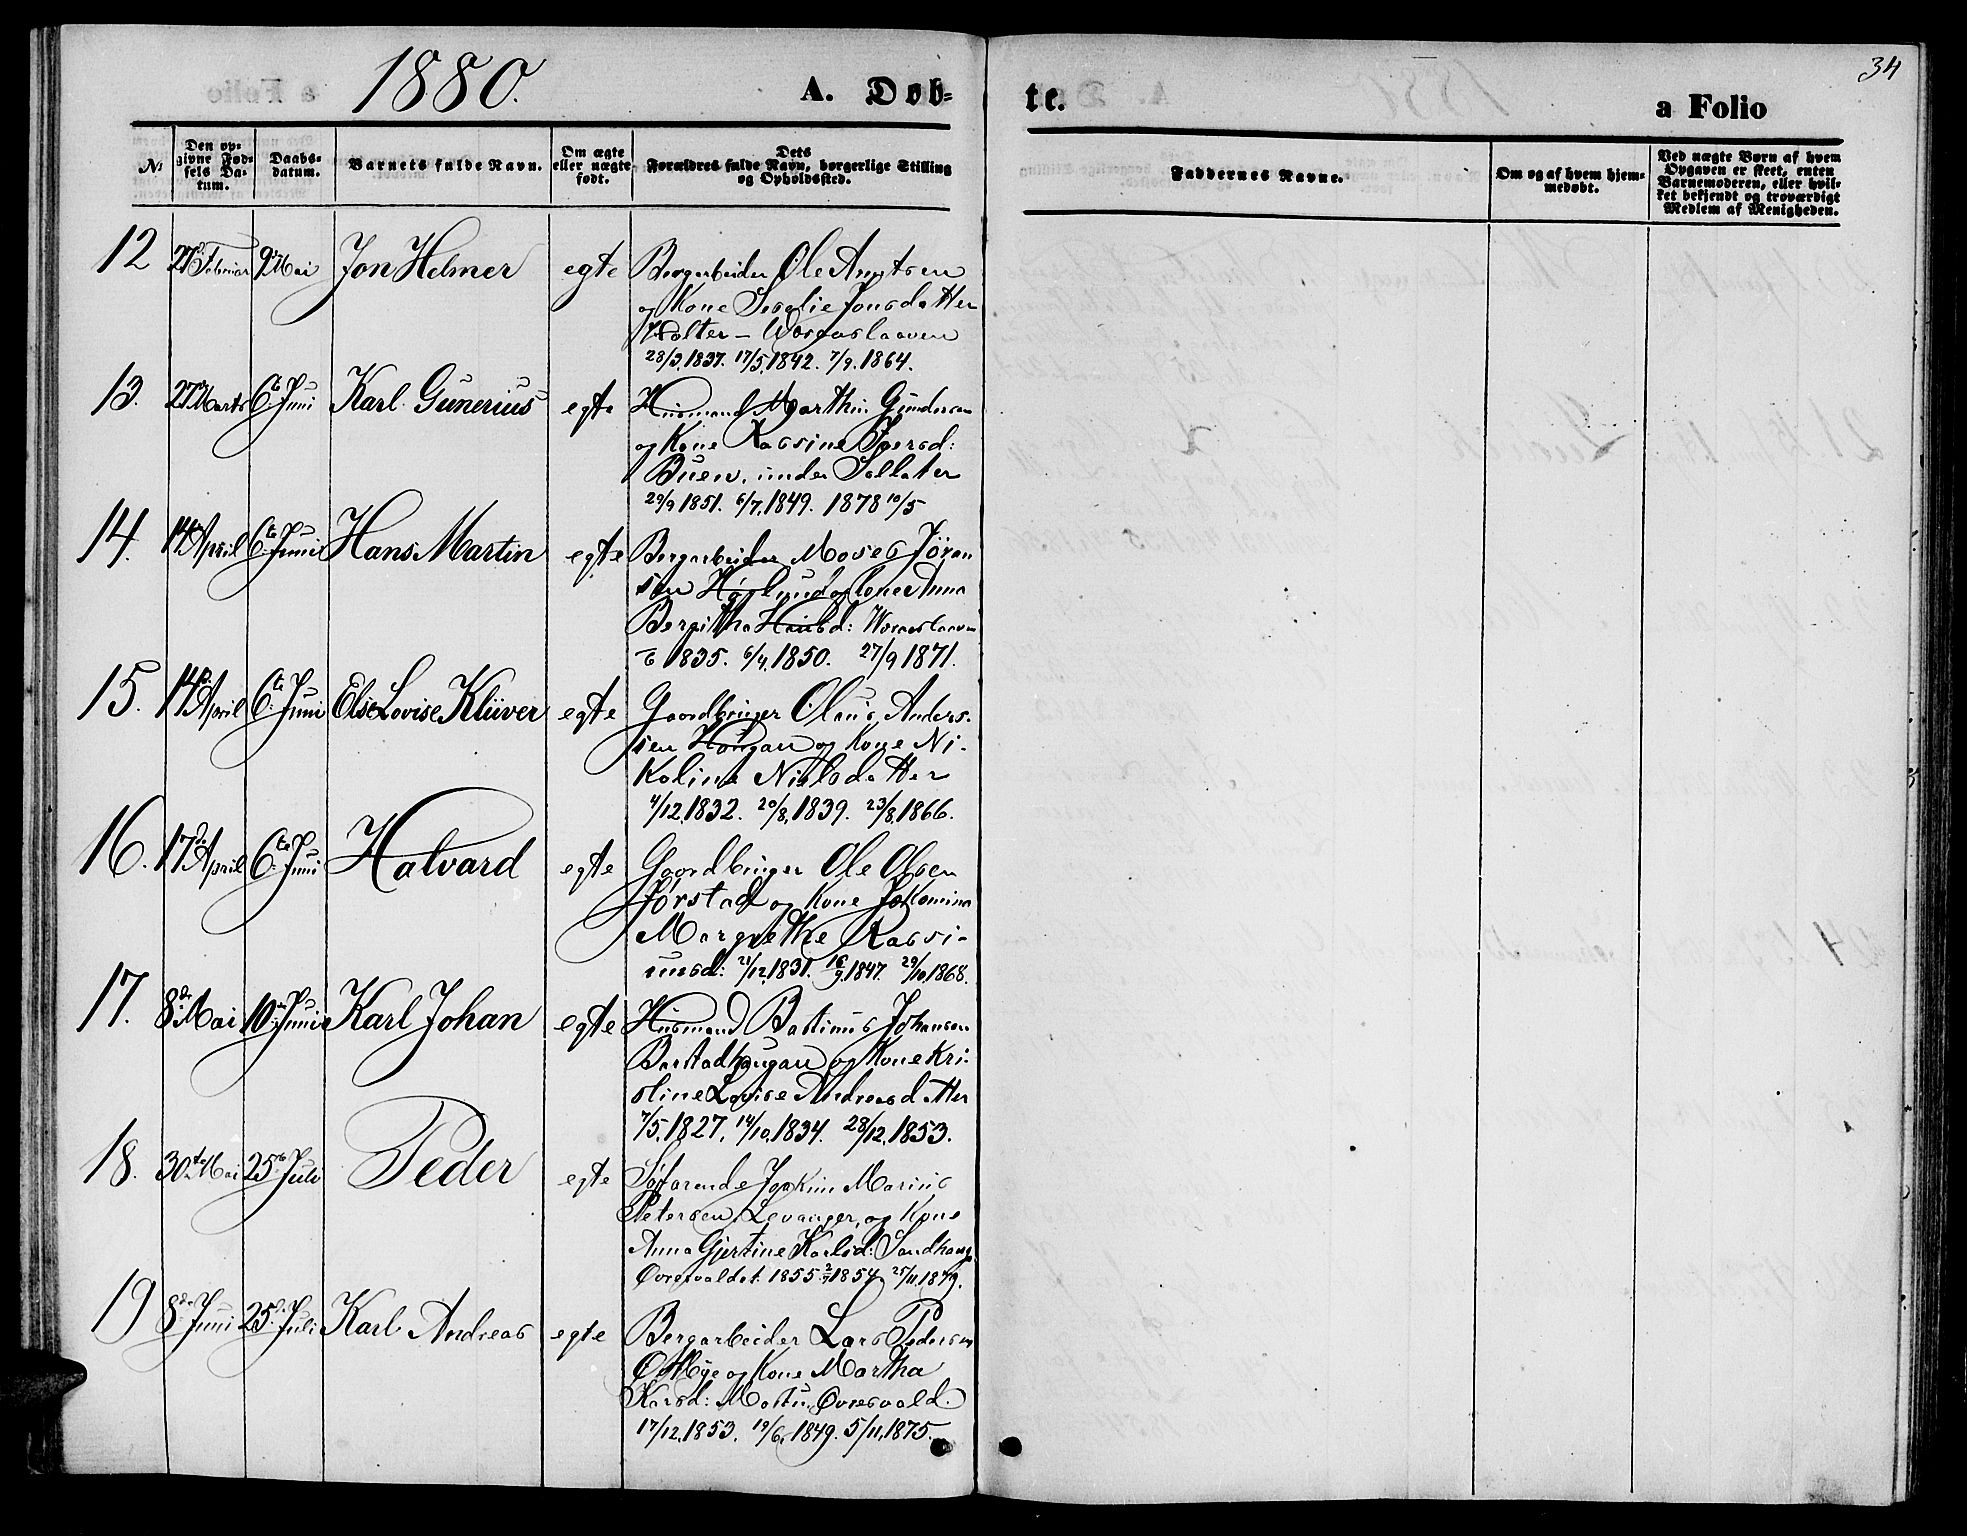 1880.
A. Døb-
te.
a Folio
34
№
Den op-
givne Fød-
sels Da-
tum.
Daabs-
datum.
Barnets fulde Navn.
Om ægte
eller uægte
født.
Dets
Forældres fulde Navn, borgerlige Stilling
og Opholdssted.
Faddernes Navne.
Om og af hvem hjem-
medøbt.
Ved uægte Børn af hvem
Opgaven er skeet, enten
Barnemoderen, eller hvil-
ket bekjendt og troværdigt
Medlem af Menigheden.
12 27 Februar 9 Mai Jon Helmer egte Bergarbeider Ole
og Kone Jonsdatter
Holter –
28/3.1837. 17/5.1842. 7/9.1864.
13. 27 Marts 6te Juni Karl Gunerius egte Husmand Marthin Gundersen
og Kone Rassine
Buen. under
29/9 1851. 6/7.1849. 1878 10/5
14. 14 April 6te Juni Hans Martin egte Bergarbeider Moses Jøran
sen og Kone Anna
Bergitha
1835. 6/4.1850. 27/9 1871.
15. 14 April 6te Juni Else Lovise Klüver egte Gaardbruger Olaus Anders-
sen Haugan og Kone Ni-
koline Nielsdatter
4/12.1832. 20/8.1839. 23/8.1866.
16. 17de April 6te Juni Halvard egte Gaardbruger Ole Olsen
Jørstad og Kone Jokomina
Margrethe Rassi-
unsd: 21/12.1831. 16/9.1847. 29/10.1868.
17. 8de Mai 10de Juni Karl Johan egte Husmand Bastinus Johansen
Barstadhaugan og Kone Kri-
stine Lovise Andreasdatter
7/5.1827. 14/10.1834. 28/12.1853.
18. 30te Mai 25 Juli Peder egte Søfarende Joakim Marius
Petersen, Levanger, og Kone
Anna Gjertine Karlsd: Sandhaug
1855 1854 25/11.1879.
19 8de Juni 25 Juli Karl Andreas egte Bergarbeider Lars Pedersen
Østbye og Kone Martha
17/12.1853. 19/6.1849. 5/11.1875.